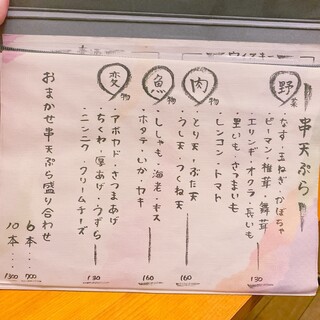 串天ぷら
野菜
・なす・玉ねぎ・かぼちゃ
・ピーマン・椎茸・舞茸
・エリンギ・オクラ・長いも
・里いも・さつまいも
・レンコン・トマト
130
肉物
・とり天・ぶた天
・うし天・つくね天
160
魚物
・ししゃも・海老・キス
・ホタテ・いか・カキ
160
変物
・アボカド・さつまあげ
・ちくわ・厚あげ・うずら
・ニンニク・クリームチーズ
130
おまかせ串天ぷら盛り合わせ
6本・・・700
10本・・・1300